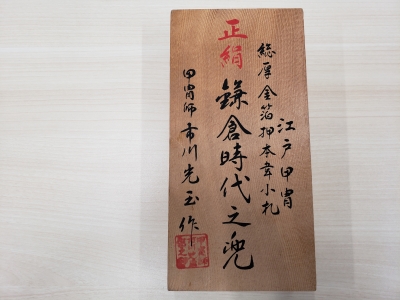 江戸甲冑
総厚金箔押本韋小札
正絹
鎌倉時代之兜
甲冑師市川光玉作